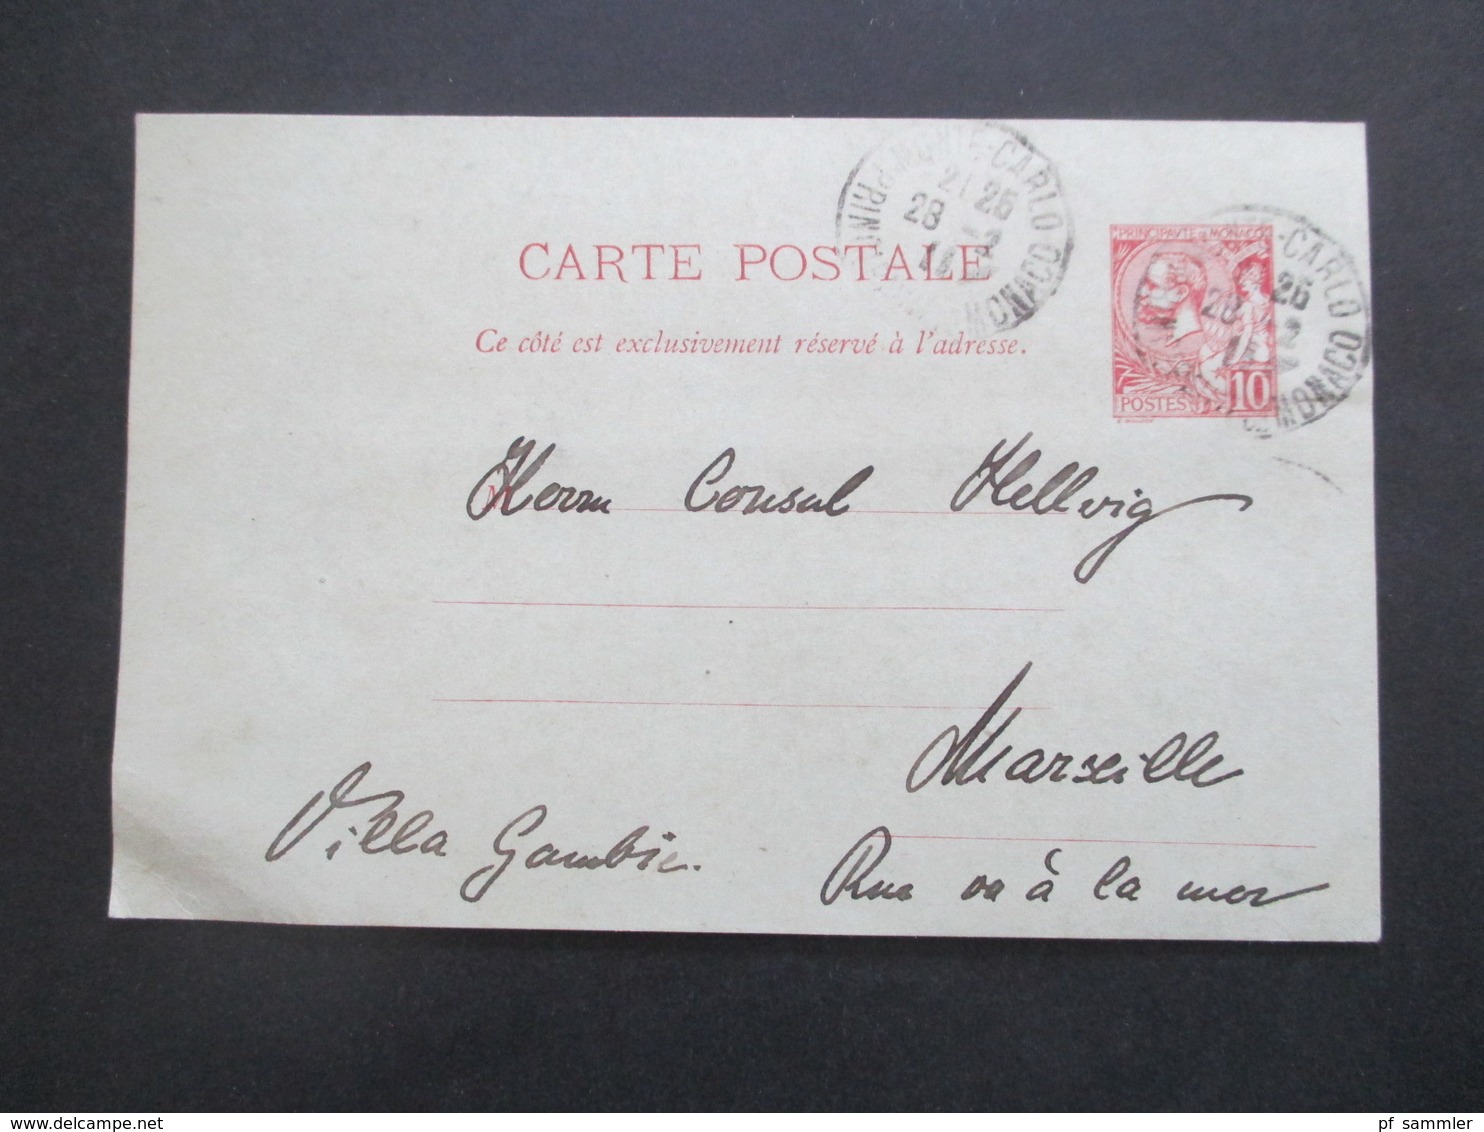 MONTE-CARLO
21 26
28
PRINCTE DE MONACO
CARTE POSTALE
Ce côté est exclusivement réservé à l'adresse.
PRINCIPAVTE DE MONACO
POSTES 10
-CARLO
28 26
MONACO
M
Herrn Consul Hellwig
Marseille
Villa Gambie.
Rue va à la mer
pf sammler